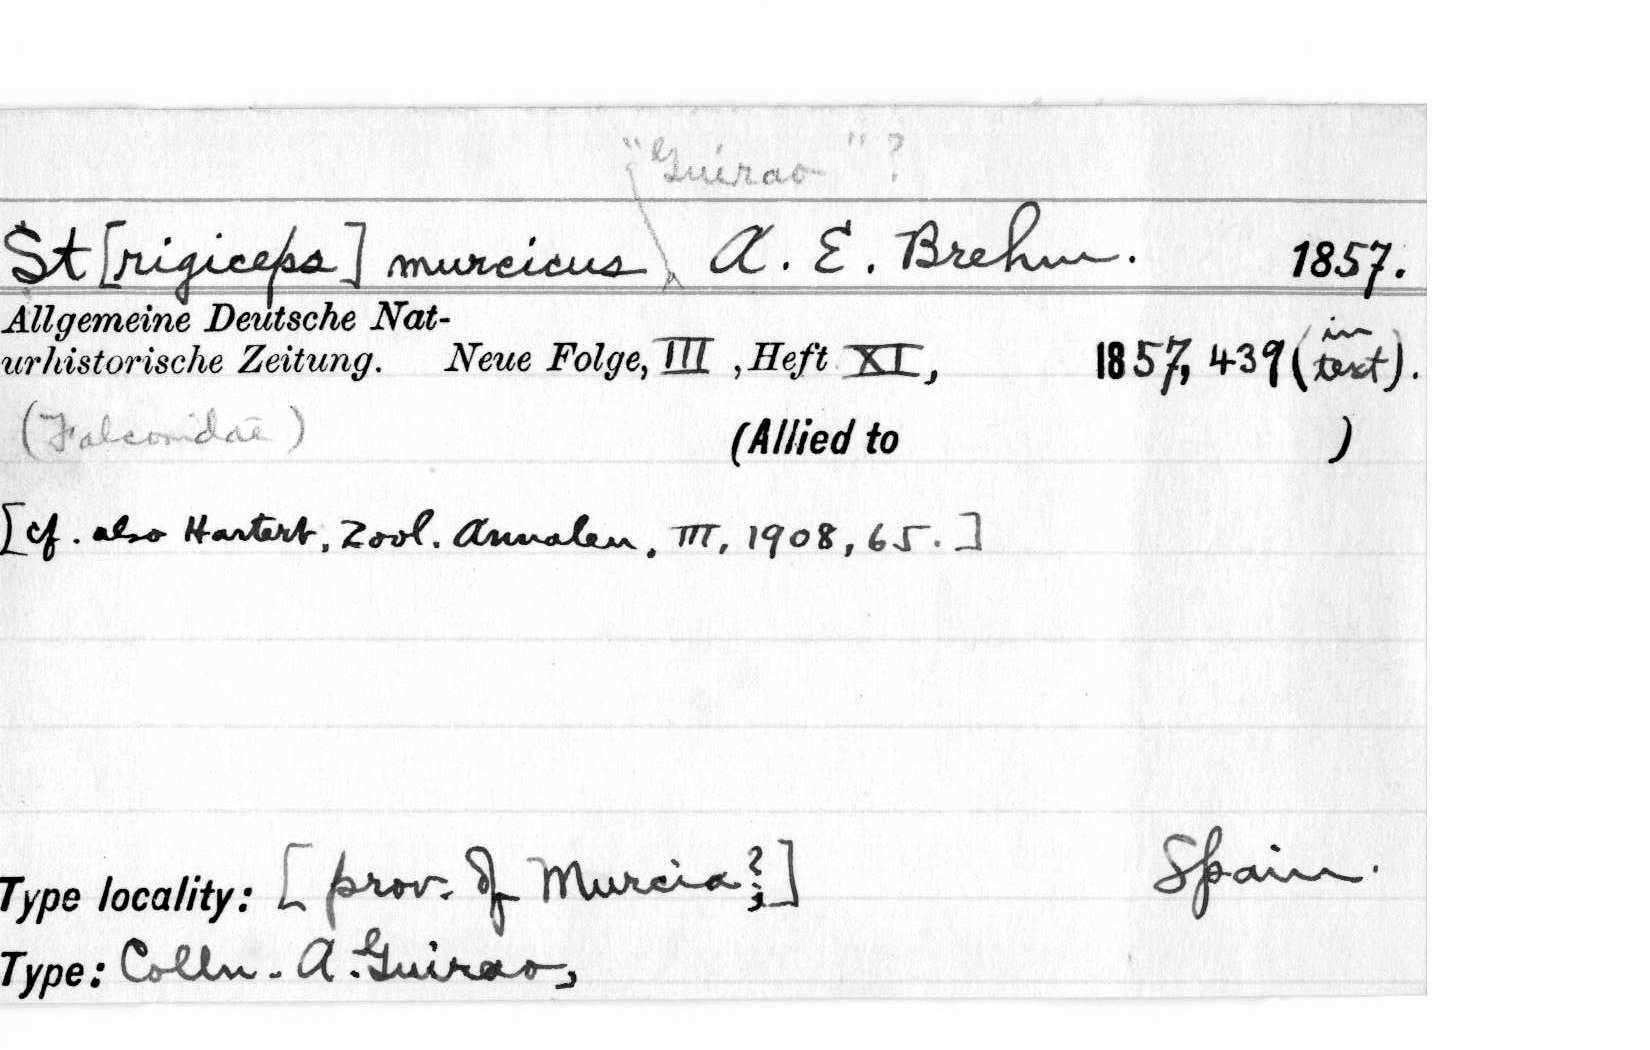 "Guirao" ?
St[rigiceps] murcicus A. E. Brehm. 1857.
Allgemeine Deutsche Nat-
urhistorische Zeitung. Neue Folge, III, Heft XI, 1857, 439 (in text).
(Falconidae) (Allied to )
[cf. also Hartert, Zool. Annalen, III, 1908, 65.]
Type locality: [prov. of Murcia?;] Spain.
Type: Colln. A. Guirao,